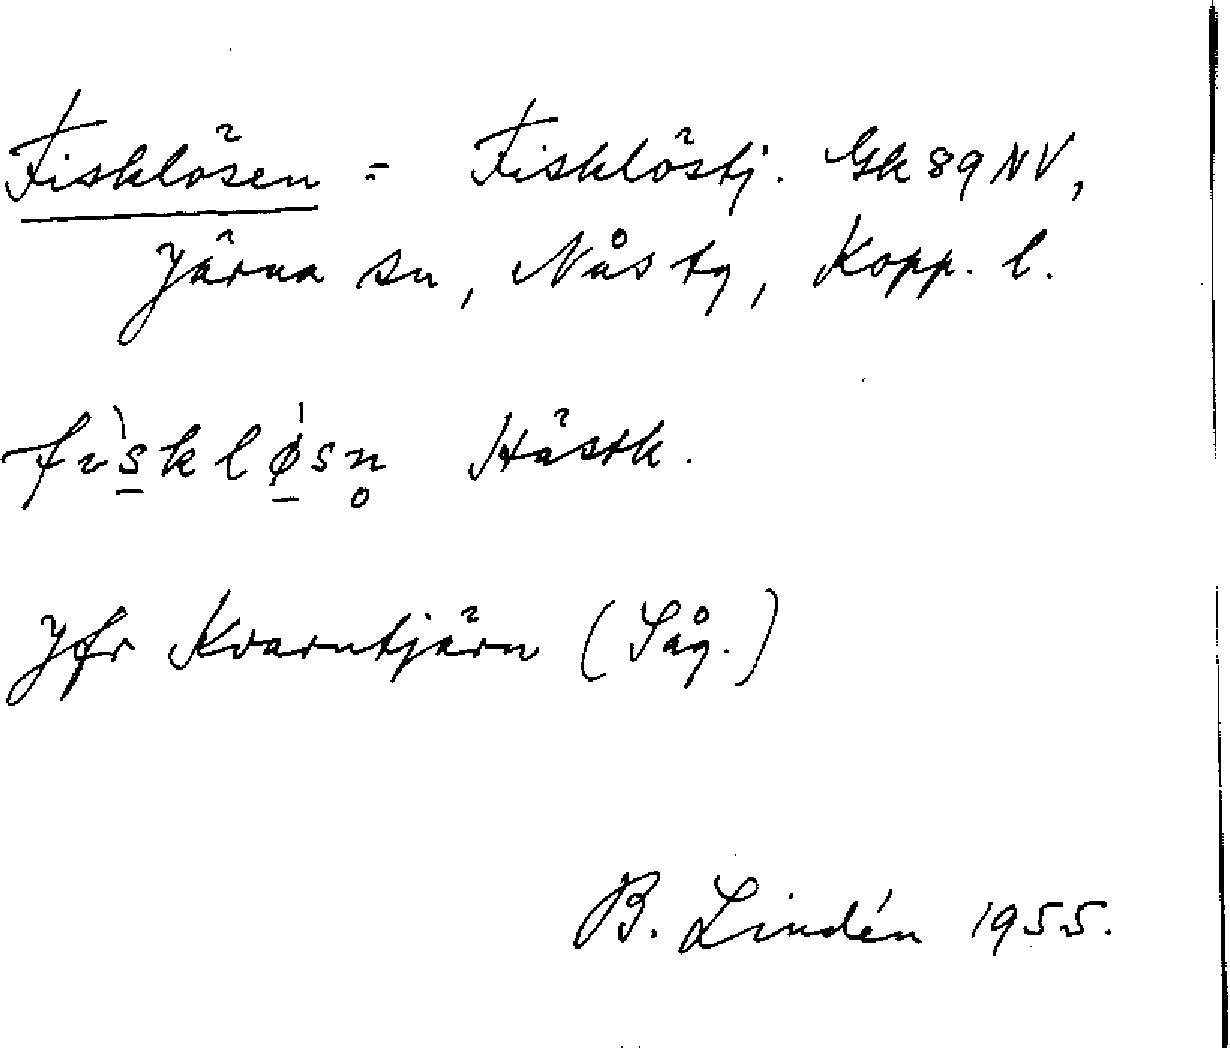 Fisklösen = Fisklöstj. Gk 89 NV,
Järna sn, Nås tg, Kopp. l.
fìs̲klǿ̲sn̥ Hästk.
Jfr Kvarntjärn (Såg.)
B. Lindén 1955.